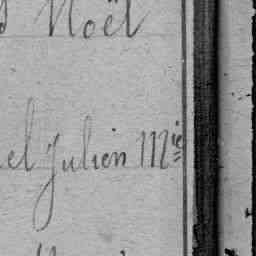 Noël
el Julien Mie